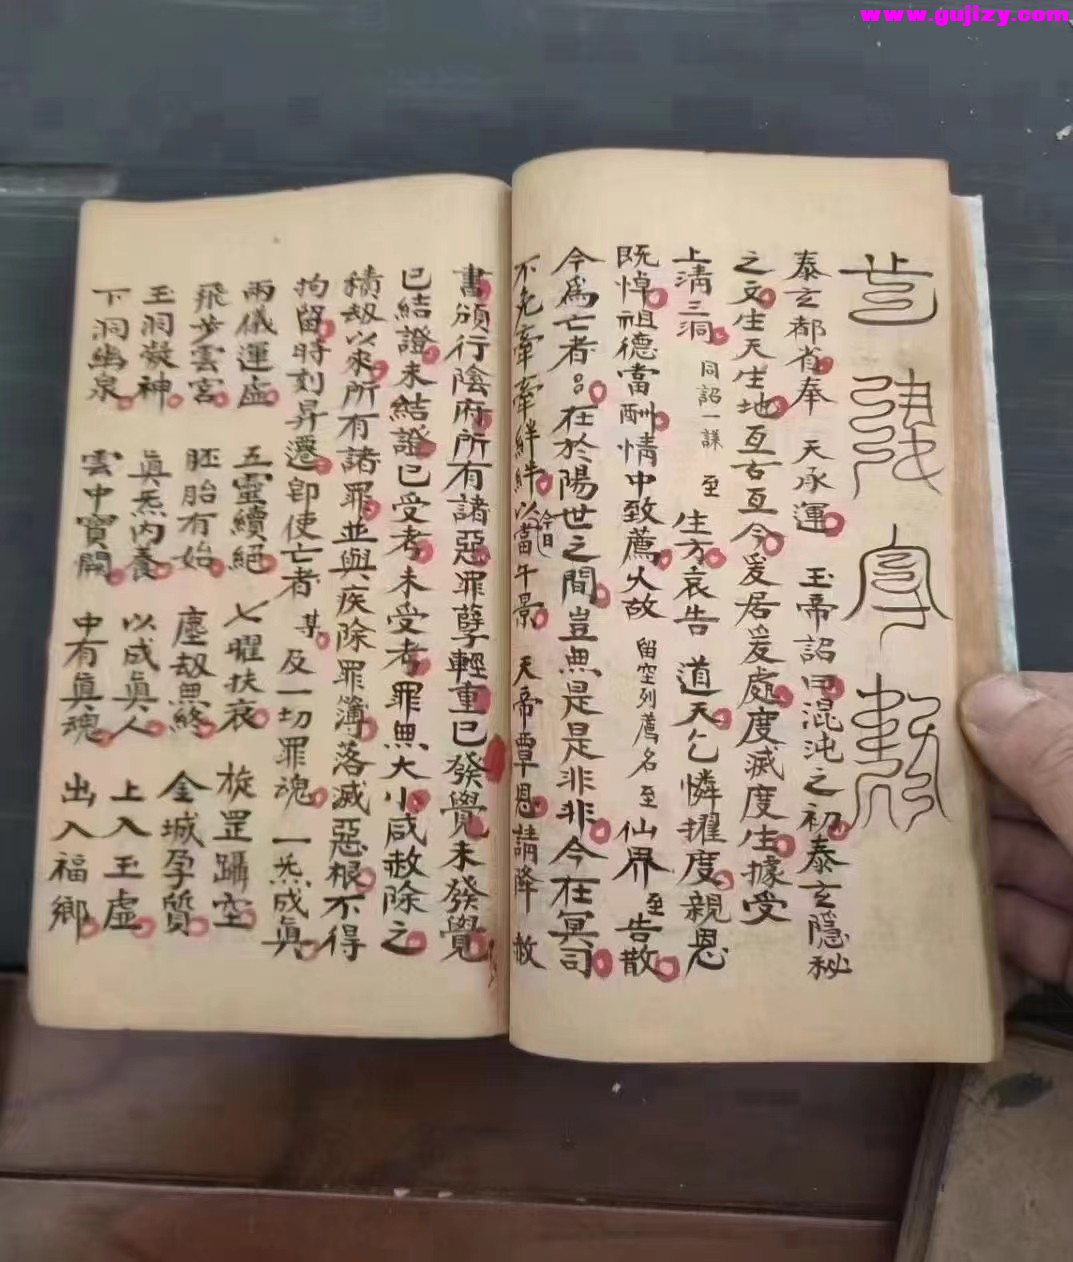 www.gujizy.com
泰玄都省奉 天承運 玉帝詔曰混沌之初泰玄隱秘
之文生天生地亙古亙今爰居爰處度滅度生據受
上清三洞 同詔一謀 至 生方哀告 道天乞憐擢度親恩
既悼祖德當酬情中致薦火故 留空列薦名 至 仙界 至 告散
今爲亡者 在於陽世之間豈無是是非非今在冥司
不免牽牽絆絆以今日當午景 天帝覃恩請降 赦
書頒行陰府所有諸惡罪孽輕重已發覺未發覺
已結證未結證已受考未受考罪無大小咸赦除之
積劫以來所有諸罪並與疾除罪簿落滅惡根不得
拘留時刻昇遷卽使亡者 某 及一切罪魂 一炁成眞
兩儀運虛 五靈續絕 七曜扶衰 旋罡躡空
飛步雲宮 胚胎有始 塵劫無終 金城孕質
玉洞凝神 眞炁內養 以成眞人 上入玉虛
下洞幽泉 雲中寶闕 中有眞魂 出入福鄉